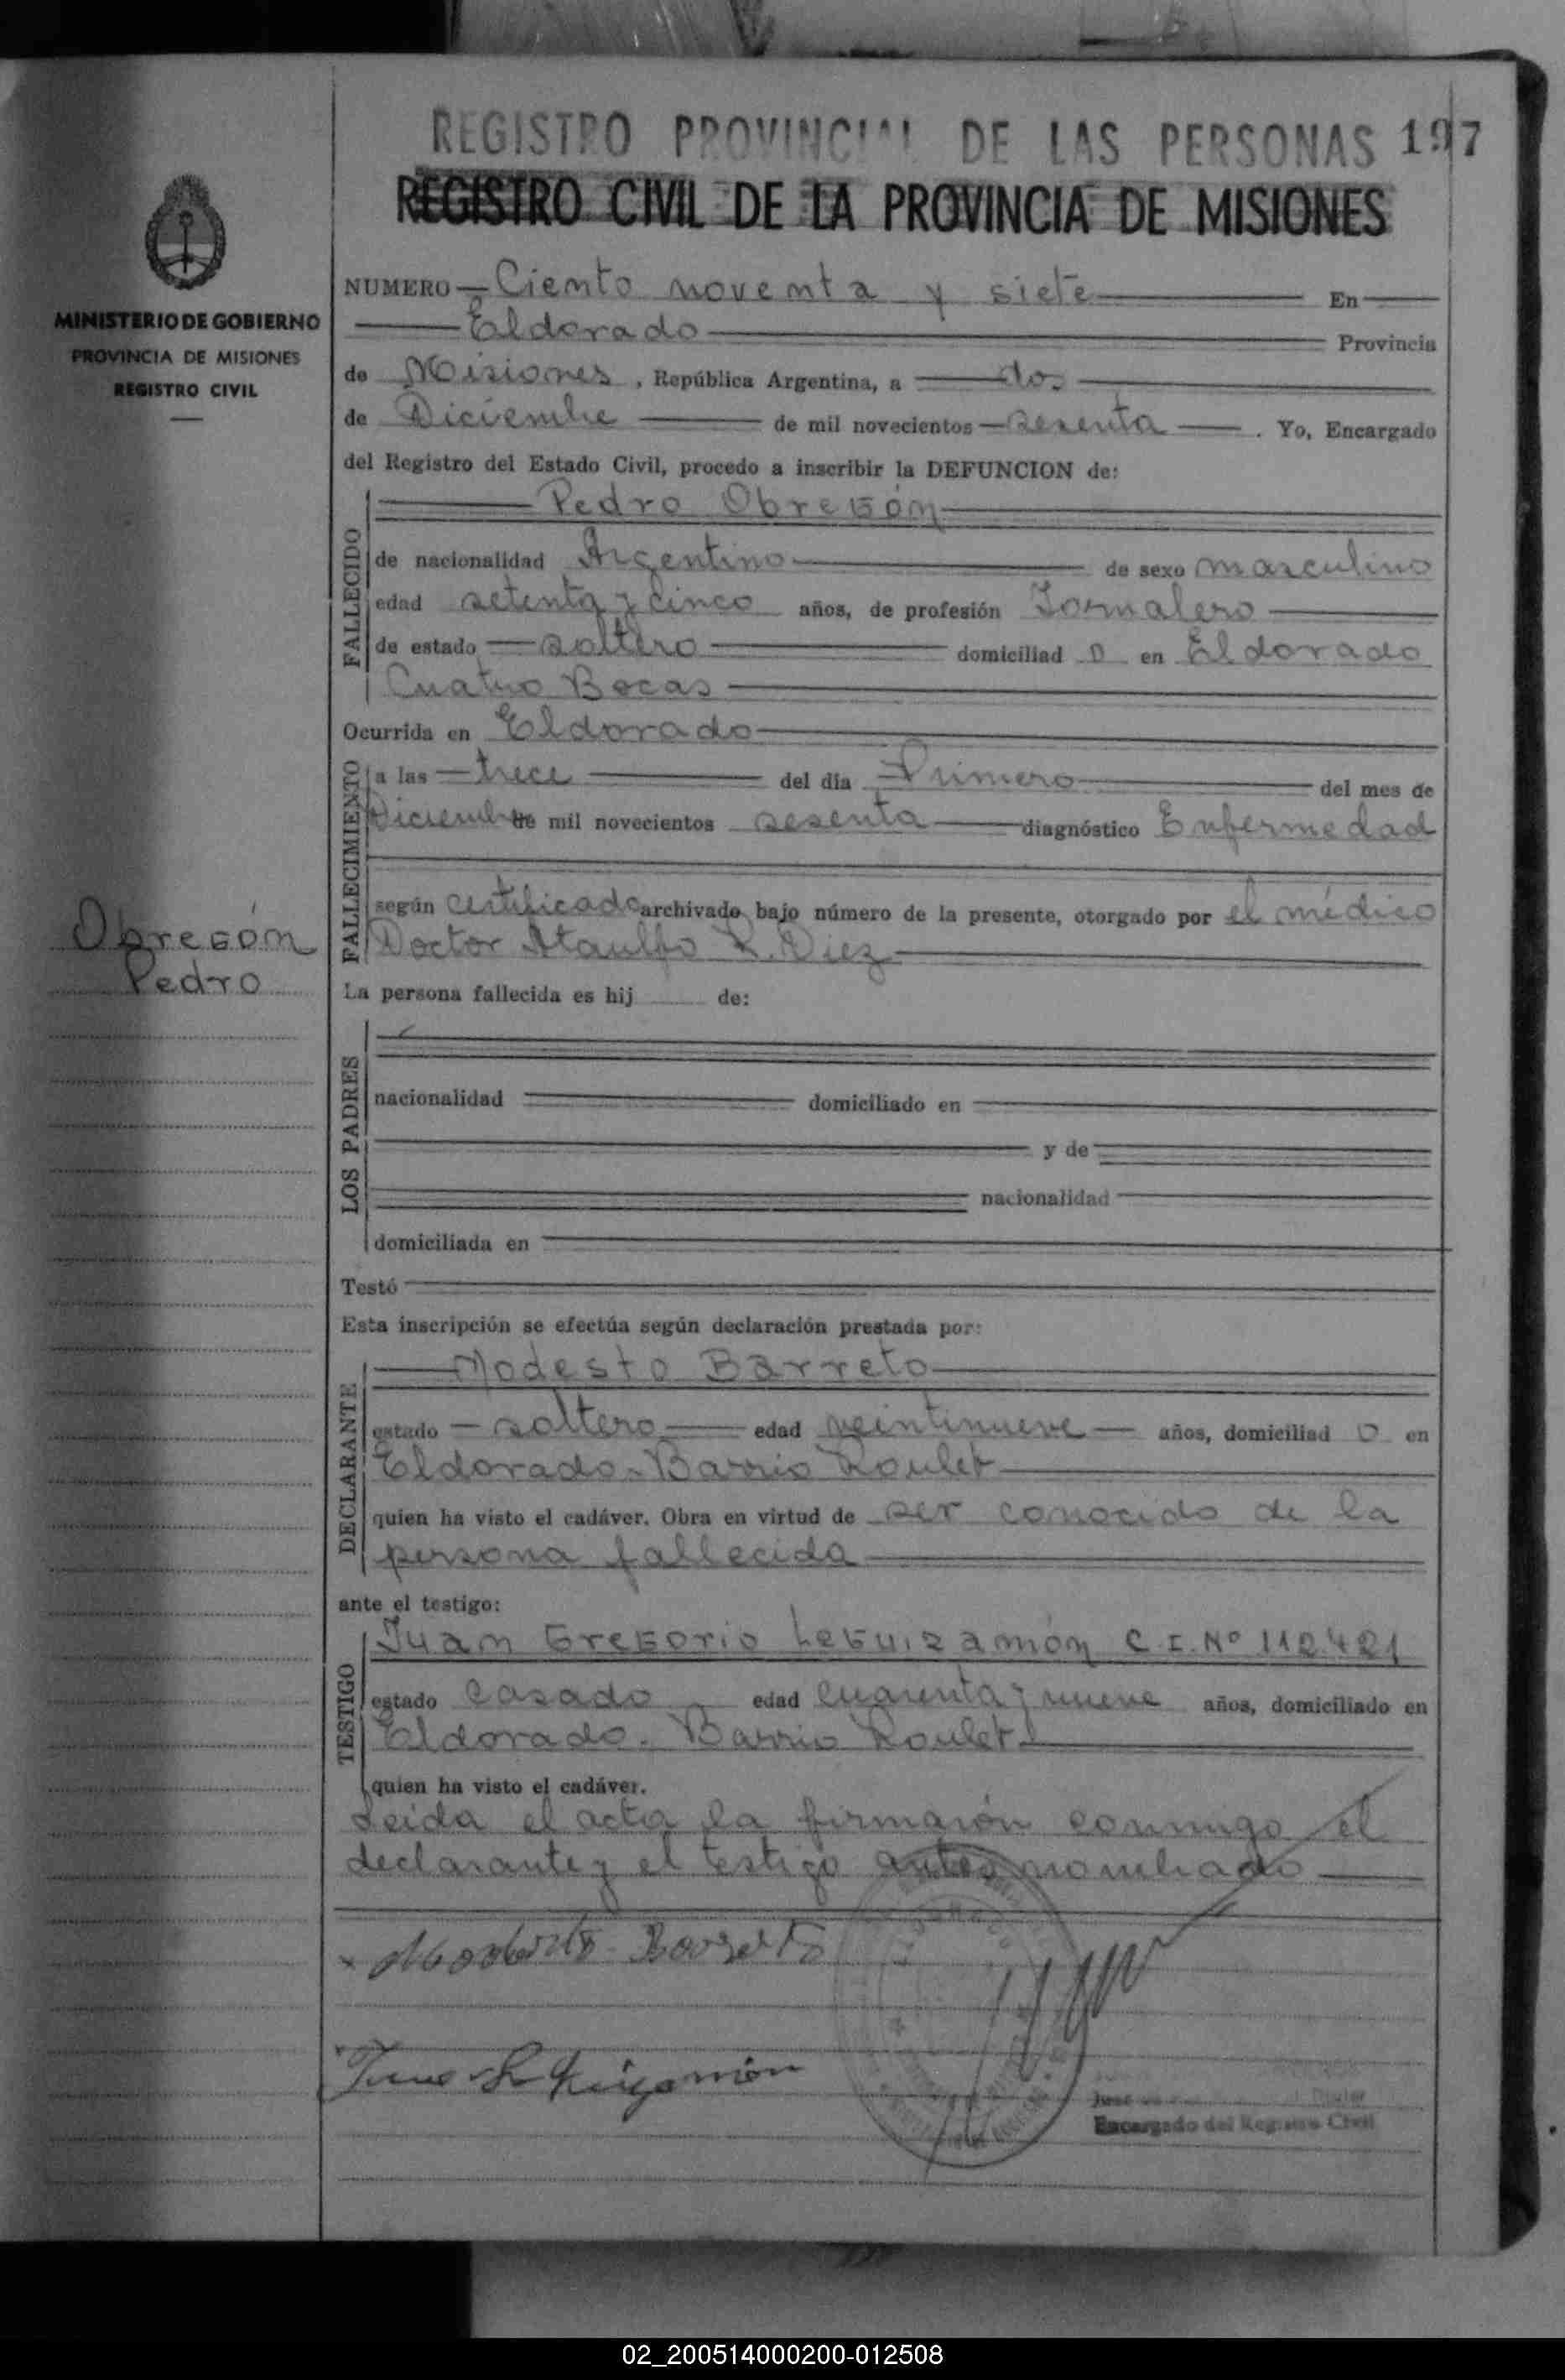 REGISTRO PROVINCIAL DE LAS PERSONAS 197
REGISTRO CIVIL DE LA PROVINCIA DE MISIONES
MINISTERIO DE GOBIERNO
PROVINCIA DE MISIONES
REGISTRO CIVIL
NUMERO Ciento noventa y siete En
Eldorado Provincia
de Misiones, República Argentina, a dos
de Diciembre de mil novecientos sesenta. Yo, Encargado
del Registro del Estado Civil, procedo a inscribir la DEFUNCION de:
FALLECIDO
Pedro Obregón
de nacionalidad Argentino de sexo masculino
edad setenta y cinco años, de profesión Jornalero
de estado soltero domiciliad o en Eldorado
Cuatro Bocas
Ocurrida en Eldorado
FALLECIMIENTO
a las trece del día Primero del mes de
Diciembre mil novecientos sesenta diagnóstico Enfermedad
según certificado archivado bajo número de la presente, otorgado por el médico
Doctor Ataulfo R. Diez
Obregón
Pedro
La persona fallecida es hij de:
LOS PADRES
nacionalidad domiciliado en
y de
nacionalidad
domiciliada en
Testó
Esta inscripción se efectúa según declaración prestada por:
DECLARANTE
Modesto Barreto
estado soltero edad veintinueve años, domiciliad o en
Eldorado. Barrio Roulet
quien ha visto el cadáver. Obra en virtud de ser conocido de la
persona fallecida
ante el testigo:
TESTIGO
Juan Gregorio Leguizamón C.I. Nº 112.421
estado casado edad cuarenta y nueve años, domiciliado en
Eldorado. Barrio Roulet
quien ha visto el cadáver.
Leida el acta la firmarón conmigo el
declarante y el testigo antes nombrado
Encargado del Registro Civil
02_200514000200-012508